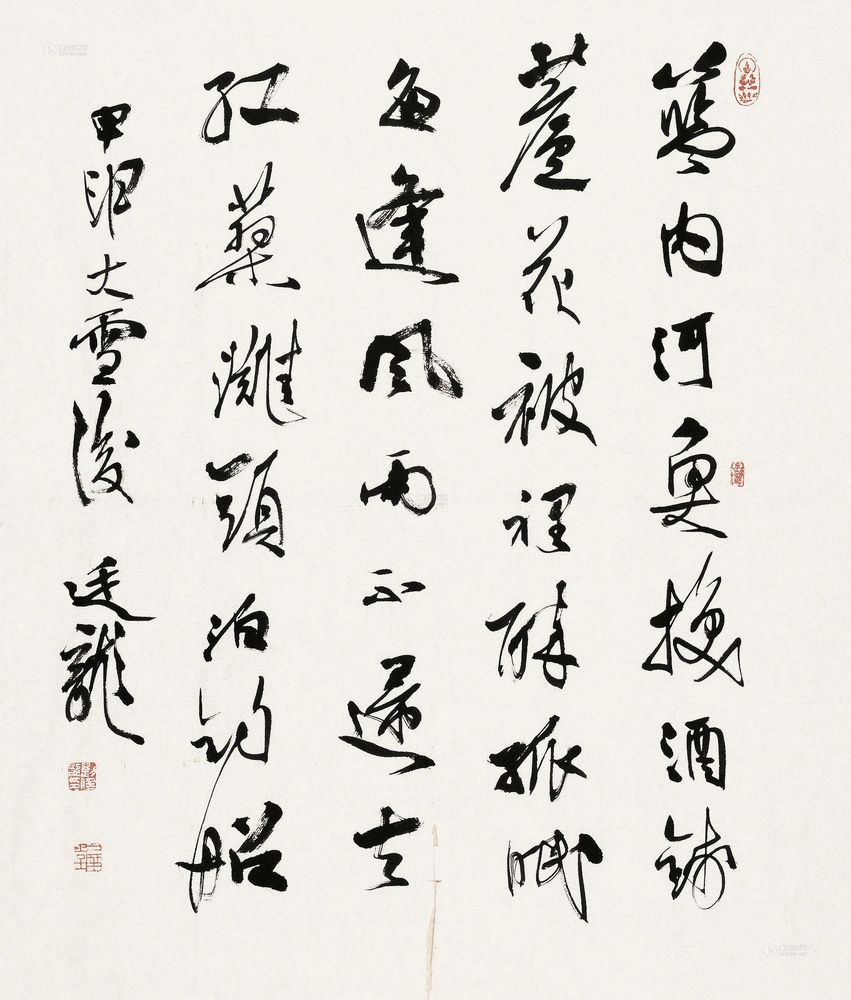 籃内河魚換酒錢
蘆花被裡醉孤眠
每逢風雨不歸去
紅蓼灘頭泊釣船
甲申大雪後 廷龍